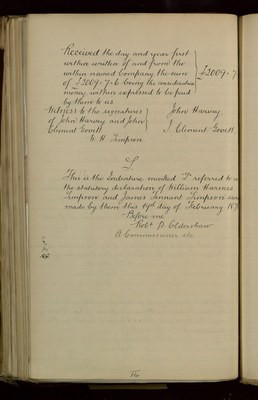 Received the day and year first
within written of and from the
within named Company the sum
of £2009. 7. 6 being the consideration
money within expressed to be paid
by them to us
£2009. 7
Witness to the signatures
of John Harvey and John
Clement Govett
W. H. Timpson
John Harvey
J. Clement Govett
F
This is the Indenture marked F referred to in
the statutory declaration of William Harness
Timpson and James Tennant Timpson
made by them this 19th day of February 187
Before me
Robt P. Oldershaw
A Commissioner &c